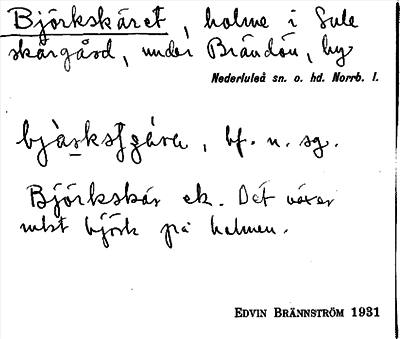 Björkskäret, holme i Lule
skärgård, under Brändön, by
Nederluleå sn. o. hd. Norrb. l.
bf. n. sg.
Björkskär ek. Det växer
mest björk på holmen.
EDVIN BRÄNNSTRÖM 1931